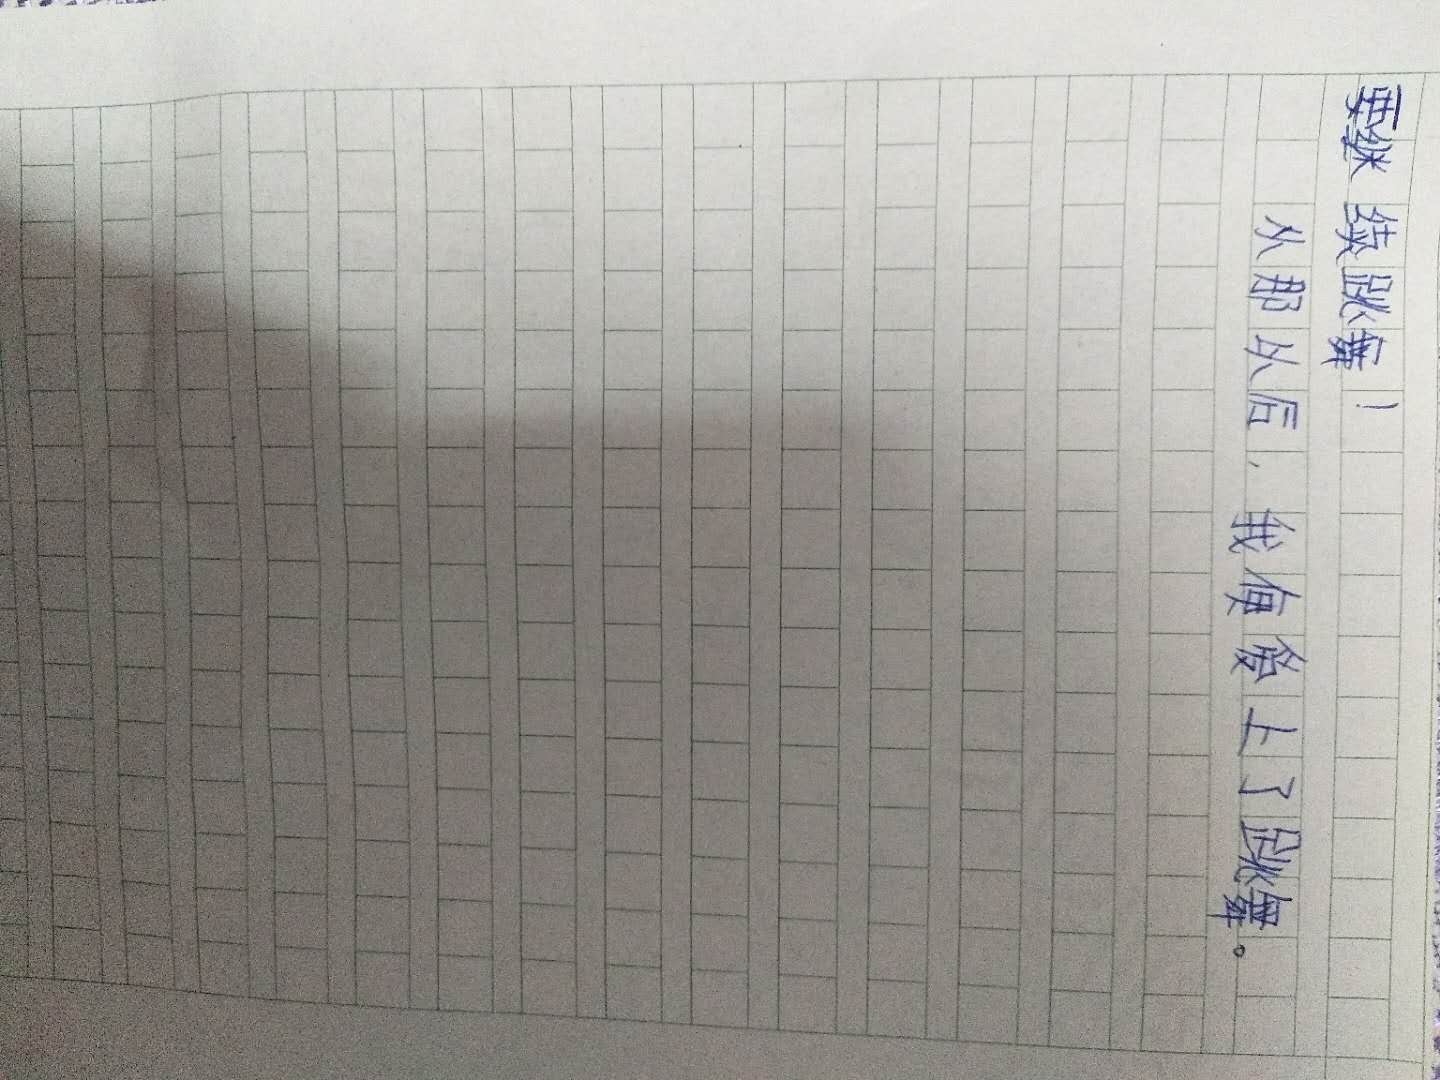 要继续跳舞！
从那以后，我便爱上了跳舞。